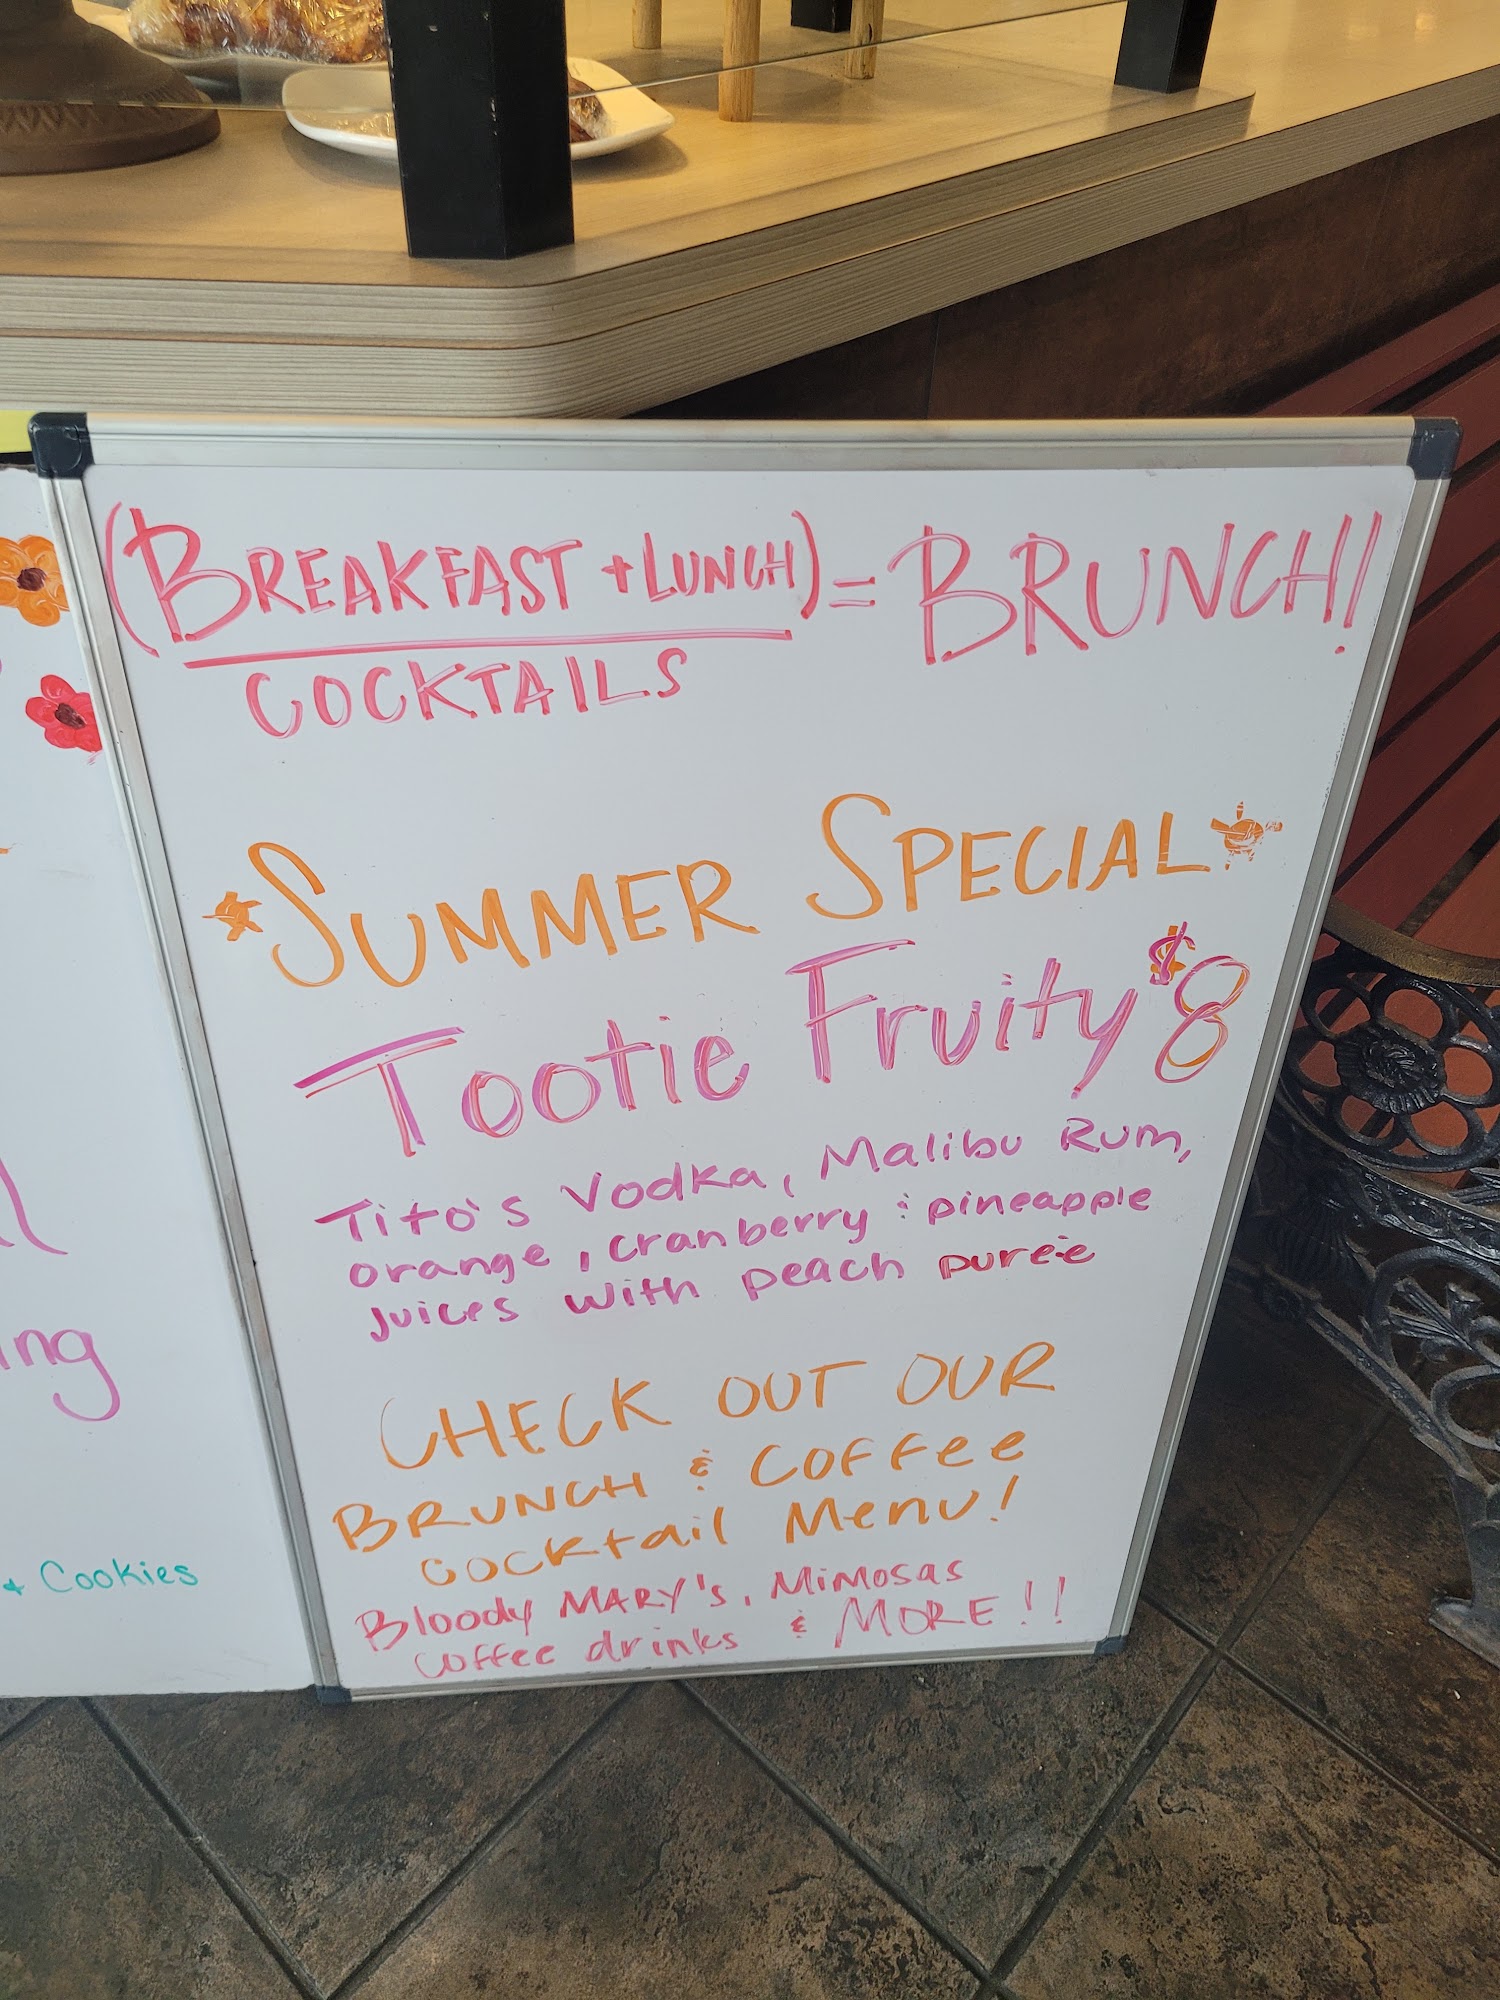 (BREAKFAST + LUNCH) = BRUNCH!
COCKTAILS
SUMMER SPECIAL
Tootie Fruity $8
Tito's Vodka, Malibu Rum,
orange, cranberry & pineapple
juices with peach purée
CHECK OUT OUR
BRUNCH & COFFee
cocktail Menu!
Bloody MARY's, MiMosas
coffee drinks & MORE!!
ing
+ Cookies